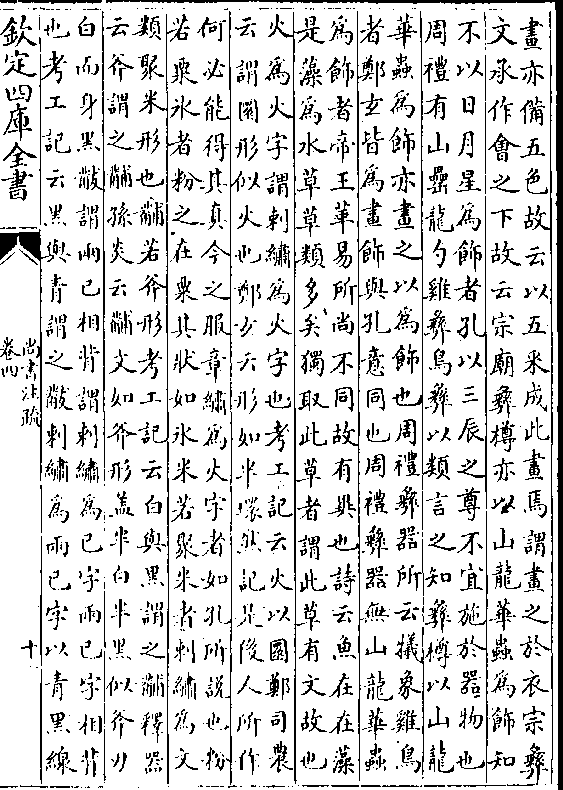 畫亦備五色故云以五采成此畫焉謂畫之於衣宗彝
文承作會之下故云宗廟彝樽亦以山龍華蟲為飾知
不以日月星為飾者孔以三辰之尊不宜施於器物也
周禮有山罍龍勺雞彝鳥彝以類言之知彝樽以山龍
華蟲為飾亦畫之以為飾也周禮彝器所云犧象雞鳥
者鄭𤣥皆為畫飾與孔意同也周禮彝器無山龍華蟲
為飾者帝王革易所尚不同故有異也詩云魚在在藻
是藻為水草草類多矣獨取此草者謂此草有文故也
火為火字謂刺繡為火字也考工記云火以圜鄭司農
云謂圜形似火也鄭𤣥云形如半環然記是後人所作
何必能得其真今之服章繡為火字者如孔所說也粉
若粟氷者粉之在粟其狀如氷米若聚米者刺繡為文
類聚米形也黼若斧形考工記云白與黑謂之黼釋器
云斧謂之黼孫炎云黼文如斧形蓋半白半黑似斧刃
白而身黑黻謂兩已相背謂刺繡為已字兩已字相背
也考工記云黑與青謂之黻刺繡為兩已字以青黑線
欽定四庫全書
尚書注疏
卷四
十